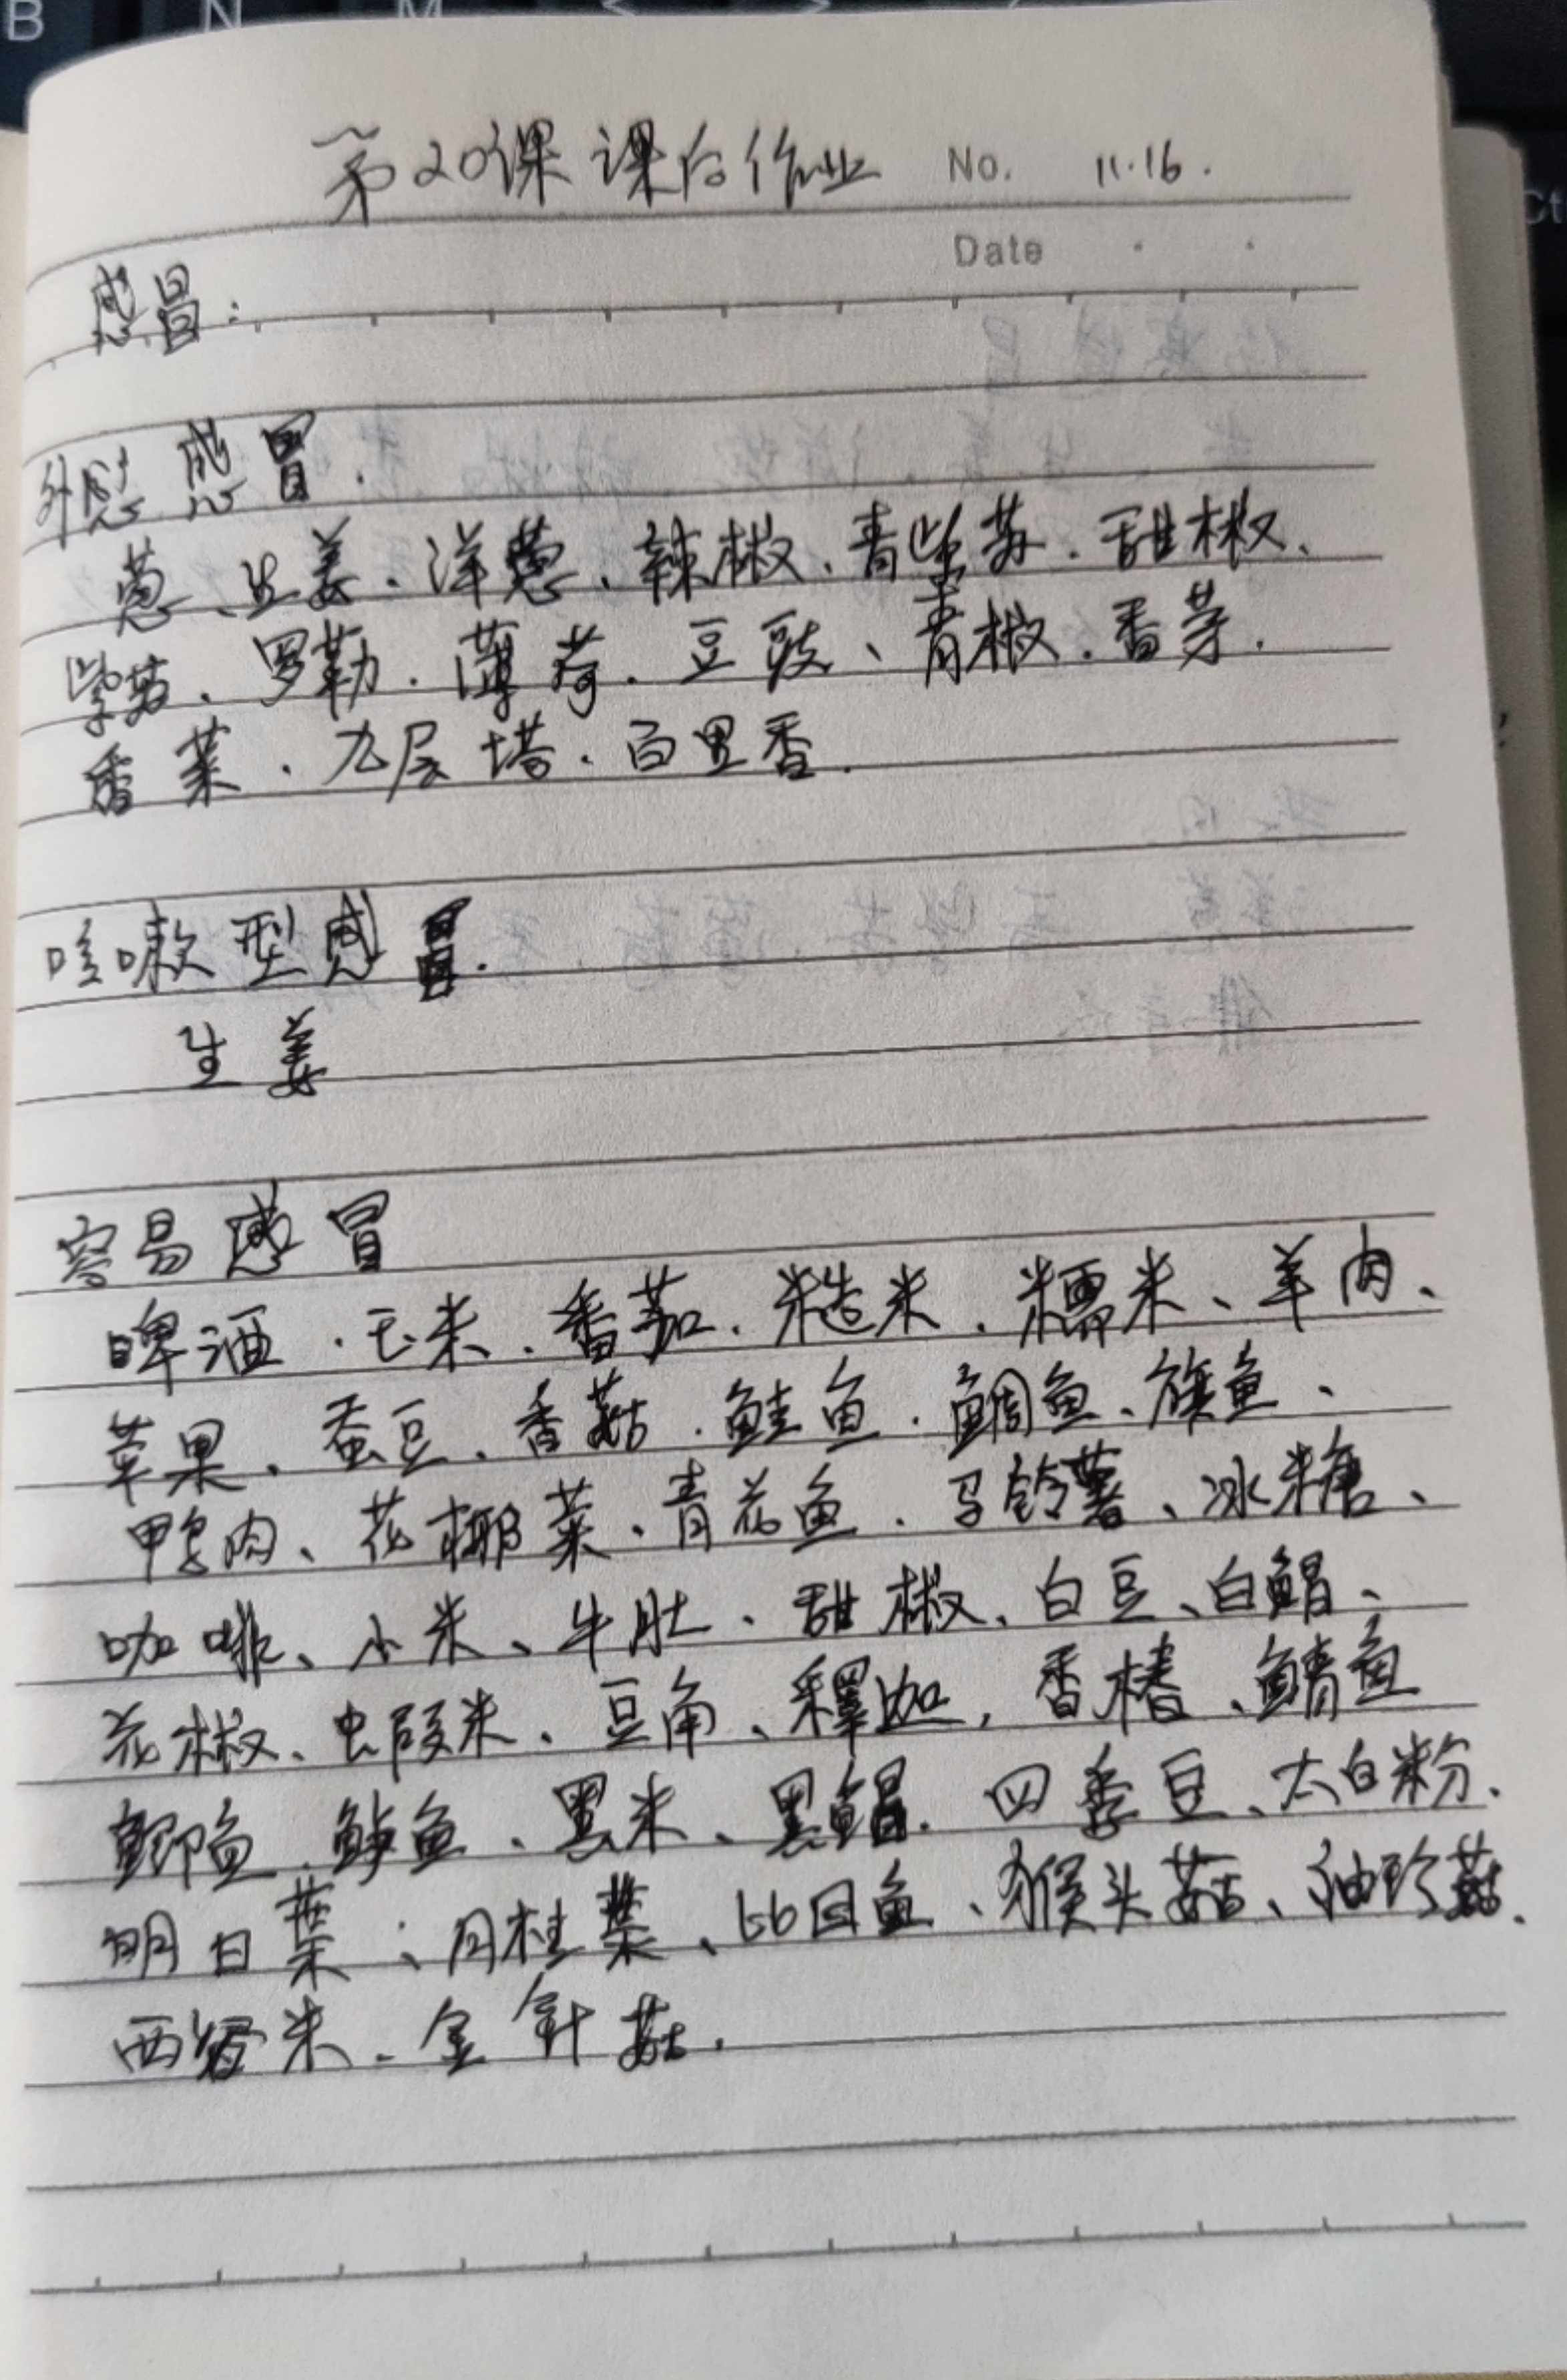 B N M < >
第20课 课后作业 No. 11.16.
Date
感冒:
外感 感冒.
葱、生姜、洋葱、辣椒、青紫苏、甜椒、
紫苏、罗勒、薄荷、豆豉、青椒、香芽.
香菜、九层塔、百里香.
咳嗽型感冒.
生姜
容易感冒
啤酒、玉米、番茄、糙米、糯米、羊肉、
苹果、蚕豆、香菇、鲑鱼、鲷鱼、旗鱼、
鸭肉、花椰菜、青花鱼、马铃薯、冰糖、
咖啡、小米、牛肚、甜椒、白豆、白鲳、
花椒、虾米、豆角、釋迦, 香椿、鲭鱼
鲫鱼、鲈鱼、黑米、黑鲳、四季豆、太白粉、
明日葉、月桂葉、比目鱼、猴头菇、袖珍菇、
西谷米、金针菇.